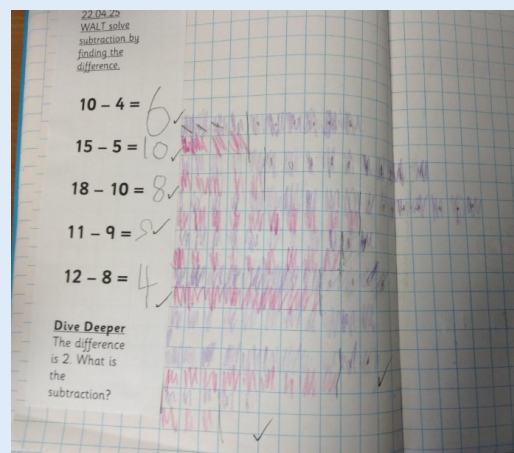 22.04.25
WALT solve
subtraction by
finding the
difference.
10 – 4 = 6
15 – 5 = 10
18 – 10 = 8
11 – 9 =
12 – 8 = 4
Dive Deeper
The difference
is 2. What is
the
subtraction?